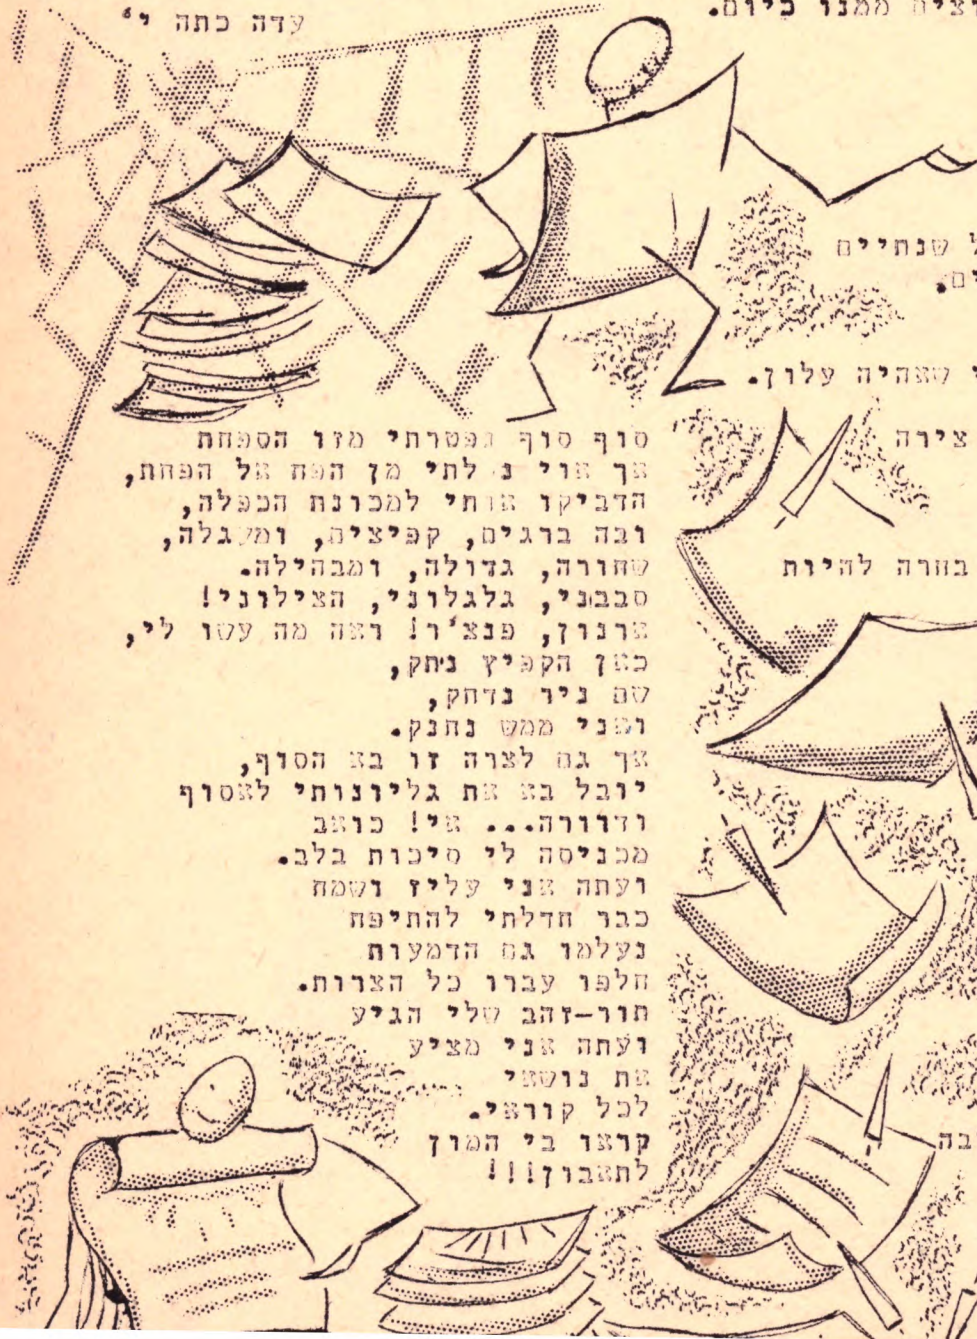 עדה כתה י'
ממנו כיום.
שנתיים
שאהיה עלון.
צירה
בחרה להיות
סוף סוף נפטרתי מזו הספחת
אך אוי נפלתי מן הפח אל הפחת,
הדביקו אותי למכונת הכפלה,
ובה ברגים, קפיצים, ומעגלה,
שחורה, גדולה, ומבהילה.
סבבוני, גלגלוני, הצילוני!
ארנון, פנצ'ר! ראה מה עשו לי,
כאן הקפיץ ניתק,
שם ניר נדחק,
ואני ממש נחנק.
אך גם לצרה זו בא הסוף,
יובל בא את גליונותי לאסוף
ודוורה... אי! כואב
מכניסה לי סיכות בלב.
ועתה אני עליז ושמח
כבר חדלתי להתיפח
נעלמו גם הדמעות
חלפו עברו כל הצרות.
תור-זהב שלי הגיע
ועתה אני מציע
את נושאי
לכל קוראי.
קראו בי המון
לתאבון!!!